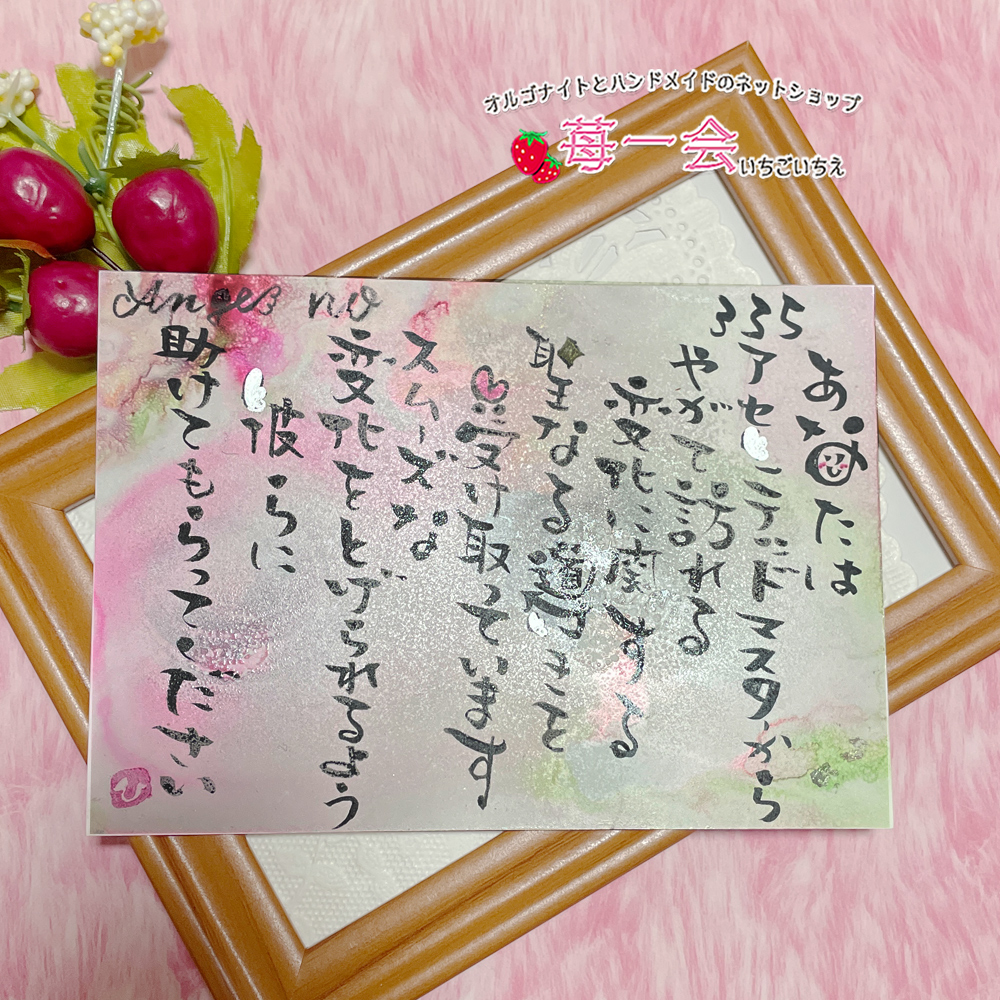 オルゴナイトとハンドメイドのネットショップ
苺一会
いちごいちえ
Angel no
335
あなたは
アセンテドマスタから
やがて訪れる
変化に関する
聖なる導きを
受け取っています
スムーズな
変化をとげられるよう
彼らに
助けてもらってください